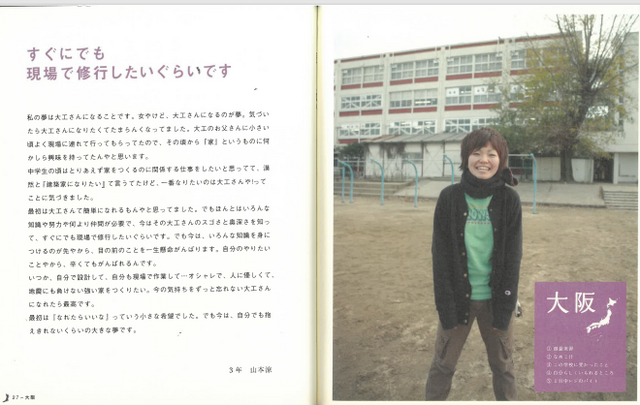 すぐにでも
現場で修行したいぐらいです
私の夢は大工さんになることです。女やけど、大工さんになるのが夢。気づい
たら大工さんになりたくてたまらんくなってました。大工のお父さんに小さい
頃よく現場に連れて行ってもらってたので、その頃から『家』というものに何
かしら興味を持ってたんやと思います。
中学生の頃はとりあえず家をつくるのに関係する仕事をしたいと思ってて、漠
然と『建築家になりたい』て言うてたけど、一番なりたいのは大工さんや!って
ことに気づきました。
最初は大工さんて簡単になれるもんやと思ってました。でもほんとはいろんな
知識や努力や何より仲間が必要で、今はその大工さんのスゴさと奥深さを知っ
て、すぐにでも現場で修行したいぐらいです。でも今は、いろんな知識を身に
つけるのが先やから、目の前のことを一生懸命がんばります。自分のやりたい
ことやから、辛くてもがんばれるんです。
いつか、自分で設計して、自分も現場で作業して…オシャレで、人に優しくて、
地震にも負けない強い家をつくりたい。今の気持ちをずっと忘れない大工さん
になれたら最高です。
最初は『なれたらいいな』っていう小さな希望でした。でも今は、自分でも抱
えきれないくらいの大きな夢です。
3年 山本涼
37−大阪
大阪
①
②
③この学校に来てよかったこと
④自分らしくいられるところ
⑤